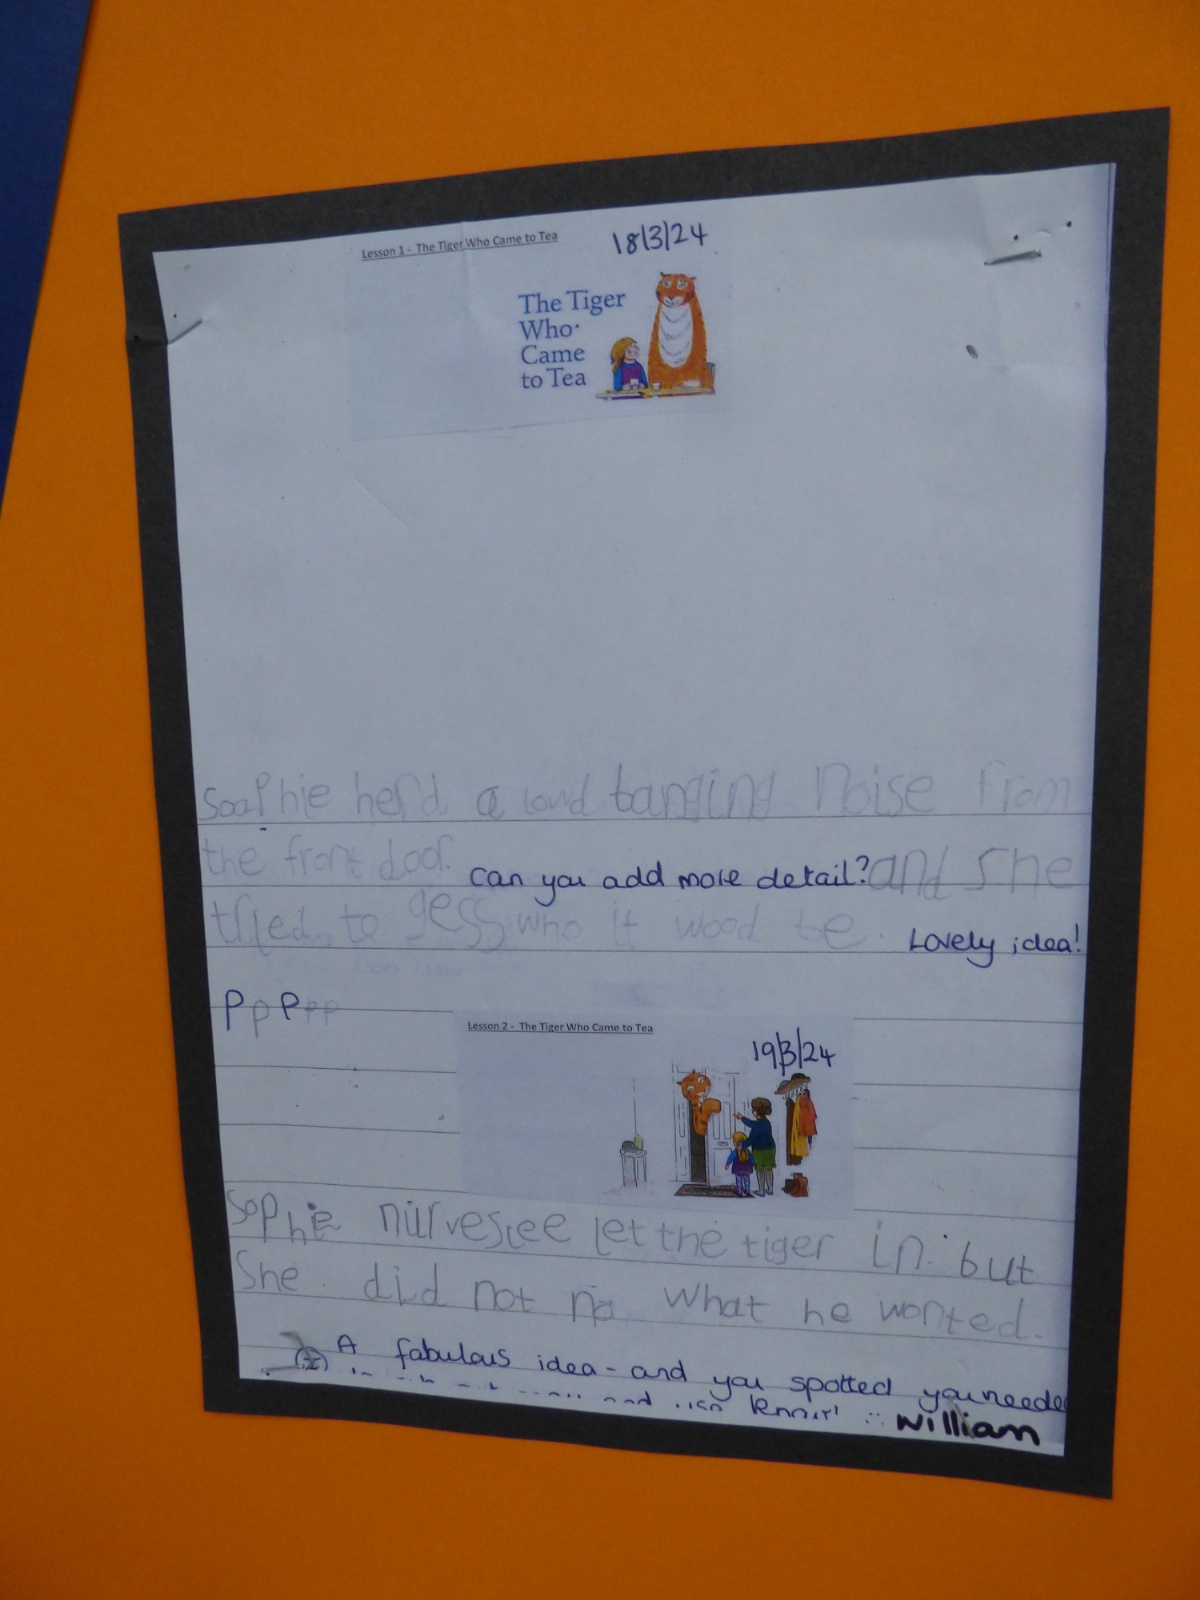 Lesson 1 - The Tiger Who Came to Tea
18/3/24
The Tiger
Who
Came
to Tea
Soaphie herd a loud banging noise from
the front door. Can you add more detail? and she
tried to gess who it wood be. Lovely idea!
P p P p p
Lesson 2 - The Tiger Who Came to Tea
19/3/24
Sophie nurveslee let the tiger in. but
She did not no what he wonted.
A fabulous idea - and you spotted you neede
and
William